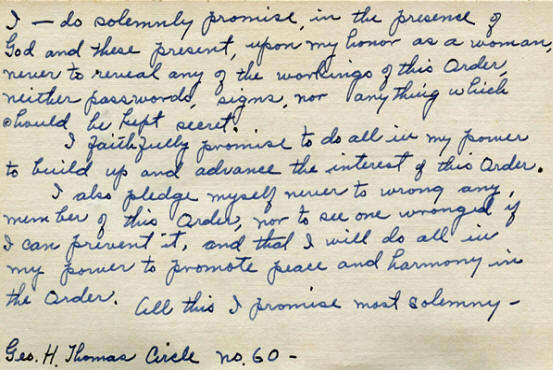 I — do solemnly promise, in the presence of
God and these present, upon my honor as a woman,
never to reveal any of the workings of this Order,
neither passwords, signs, nor anything which
should be kept secret.
I faithfully promise to do all in my power
to build up and advance the interest of this Order.
I also pledge myself never to wrong any,
member of this Order, nor to see one wronged if
I can prevent it, and that I will do all in
my power to promote peace and harmony in
the Order. All this I promise most solemny -
Geo. H. Thomas Circle no. 60 -